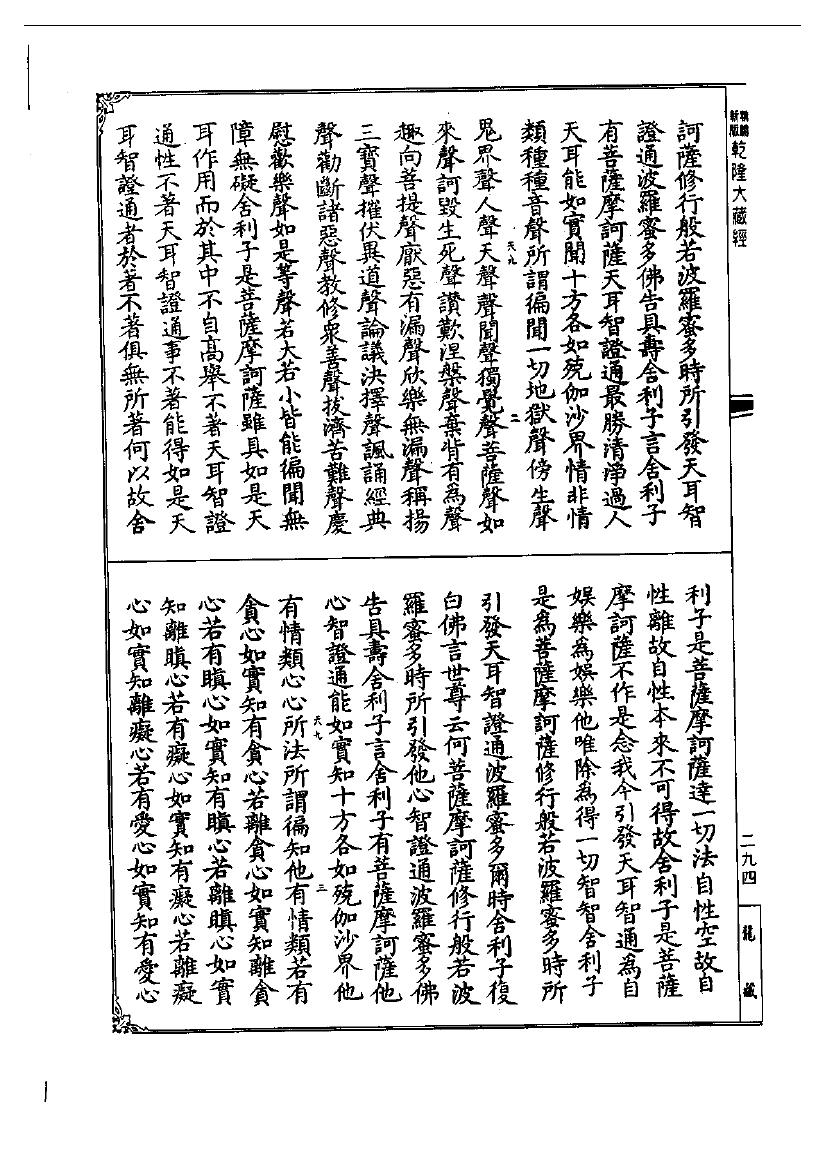 新編
新版
乾隆大藏經
訶薩修行般若波羅蜜多時所引發天耳智
證通波羅蜜多佛告具壽舍利子言舍利子
有菩薩摩訶薩天耳智證通最勝清淨過人
天耳能如實聞十方各如殑伽沙界情非情
類種種音聲所謂徧聞一切地獄聲傍生聲
天九
二
鬼界聲人聲天聲聲聞聲獨覺聲菩薩聲如
來聲訶毀生死聲讚歎涅槃聲棄背有為聲
趣向菩提聲厭惡有漏聲欣樂無漏聲稱揚
三寶聲摧伏異道聲論議決擇聲諷誦經典
聲勸斷諸惡聲教修衆善聲拔濟苦難聲慶
慰歡樂聲如是等聲若大若小皆能徧聞無
障無礙舍利子是菩薩摩訶薩雖具如是天
耳作用而於其中不自高舉不著天耳智證
通性不著天耳智證通事不著能得如是天
耳智證通者於著不著俱無所著何以故舍
利子是菩薩摩訶薩達一切法自性空故自
性離故自性本來不可得故舍利子是菩薩
摩訶薩不作是念我今引發天耳智通為自
娛樂為娛樂他唯除為得一切智智舍利子
是為菩薩摩訶薩修行般若波羅蜜多時所
引發天耳智證通波羅蜜多爾時舍利子復
白佛言世尊云何菩薩摩訶薩修行般若波
羅蜜多時所引發他心智證通波羅蜜多佛
告具壽舍利子言舍利子有菩薩摩訶薩他
心智證通能如實知十方各如殑伽沙界他
天九
三
有情類心心所法所謂徧知他有情類若有
貪心如實知有貪心若離貪心如實知離貪
心若有瞋心如實知有瞋心若離瞋心如實
知離瞋心若有癡心如實知有癡心若離癡
心如實知離癡心若有愛心如實知有愛心
二九四
龍藏